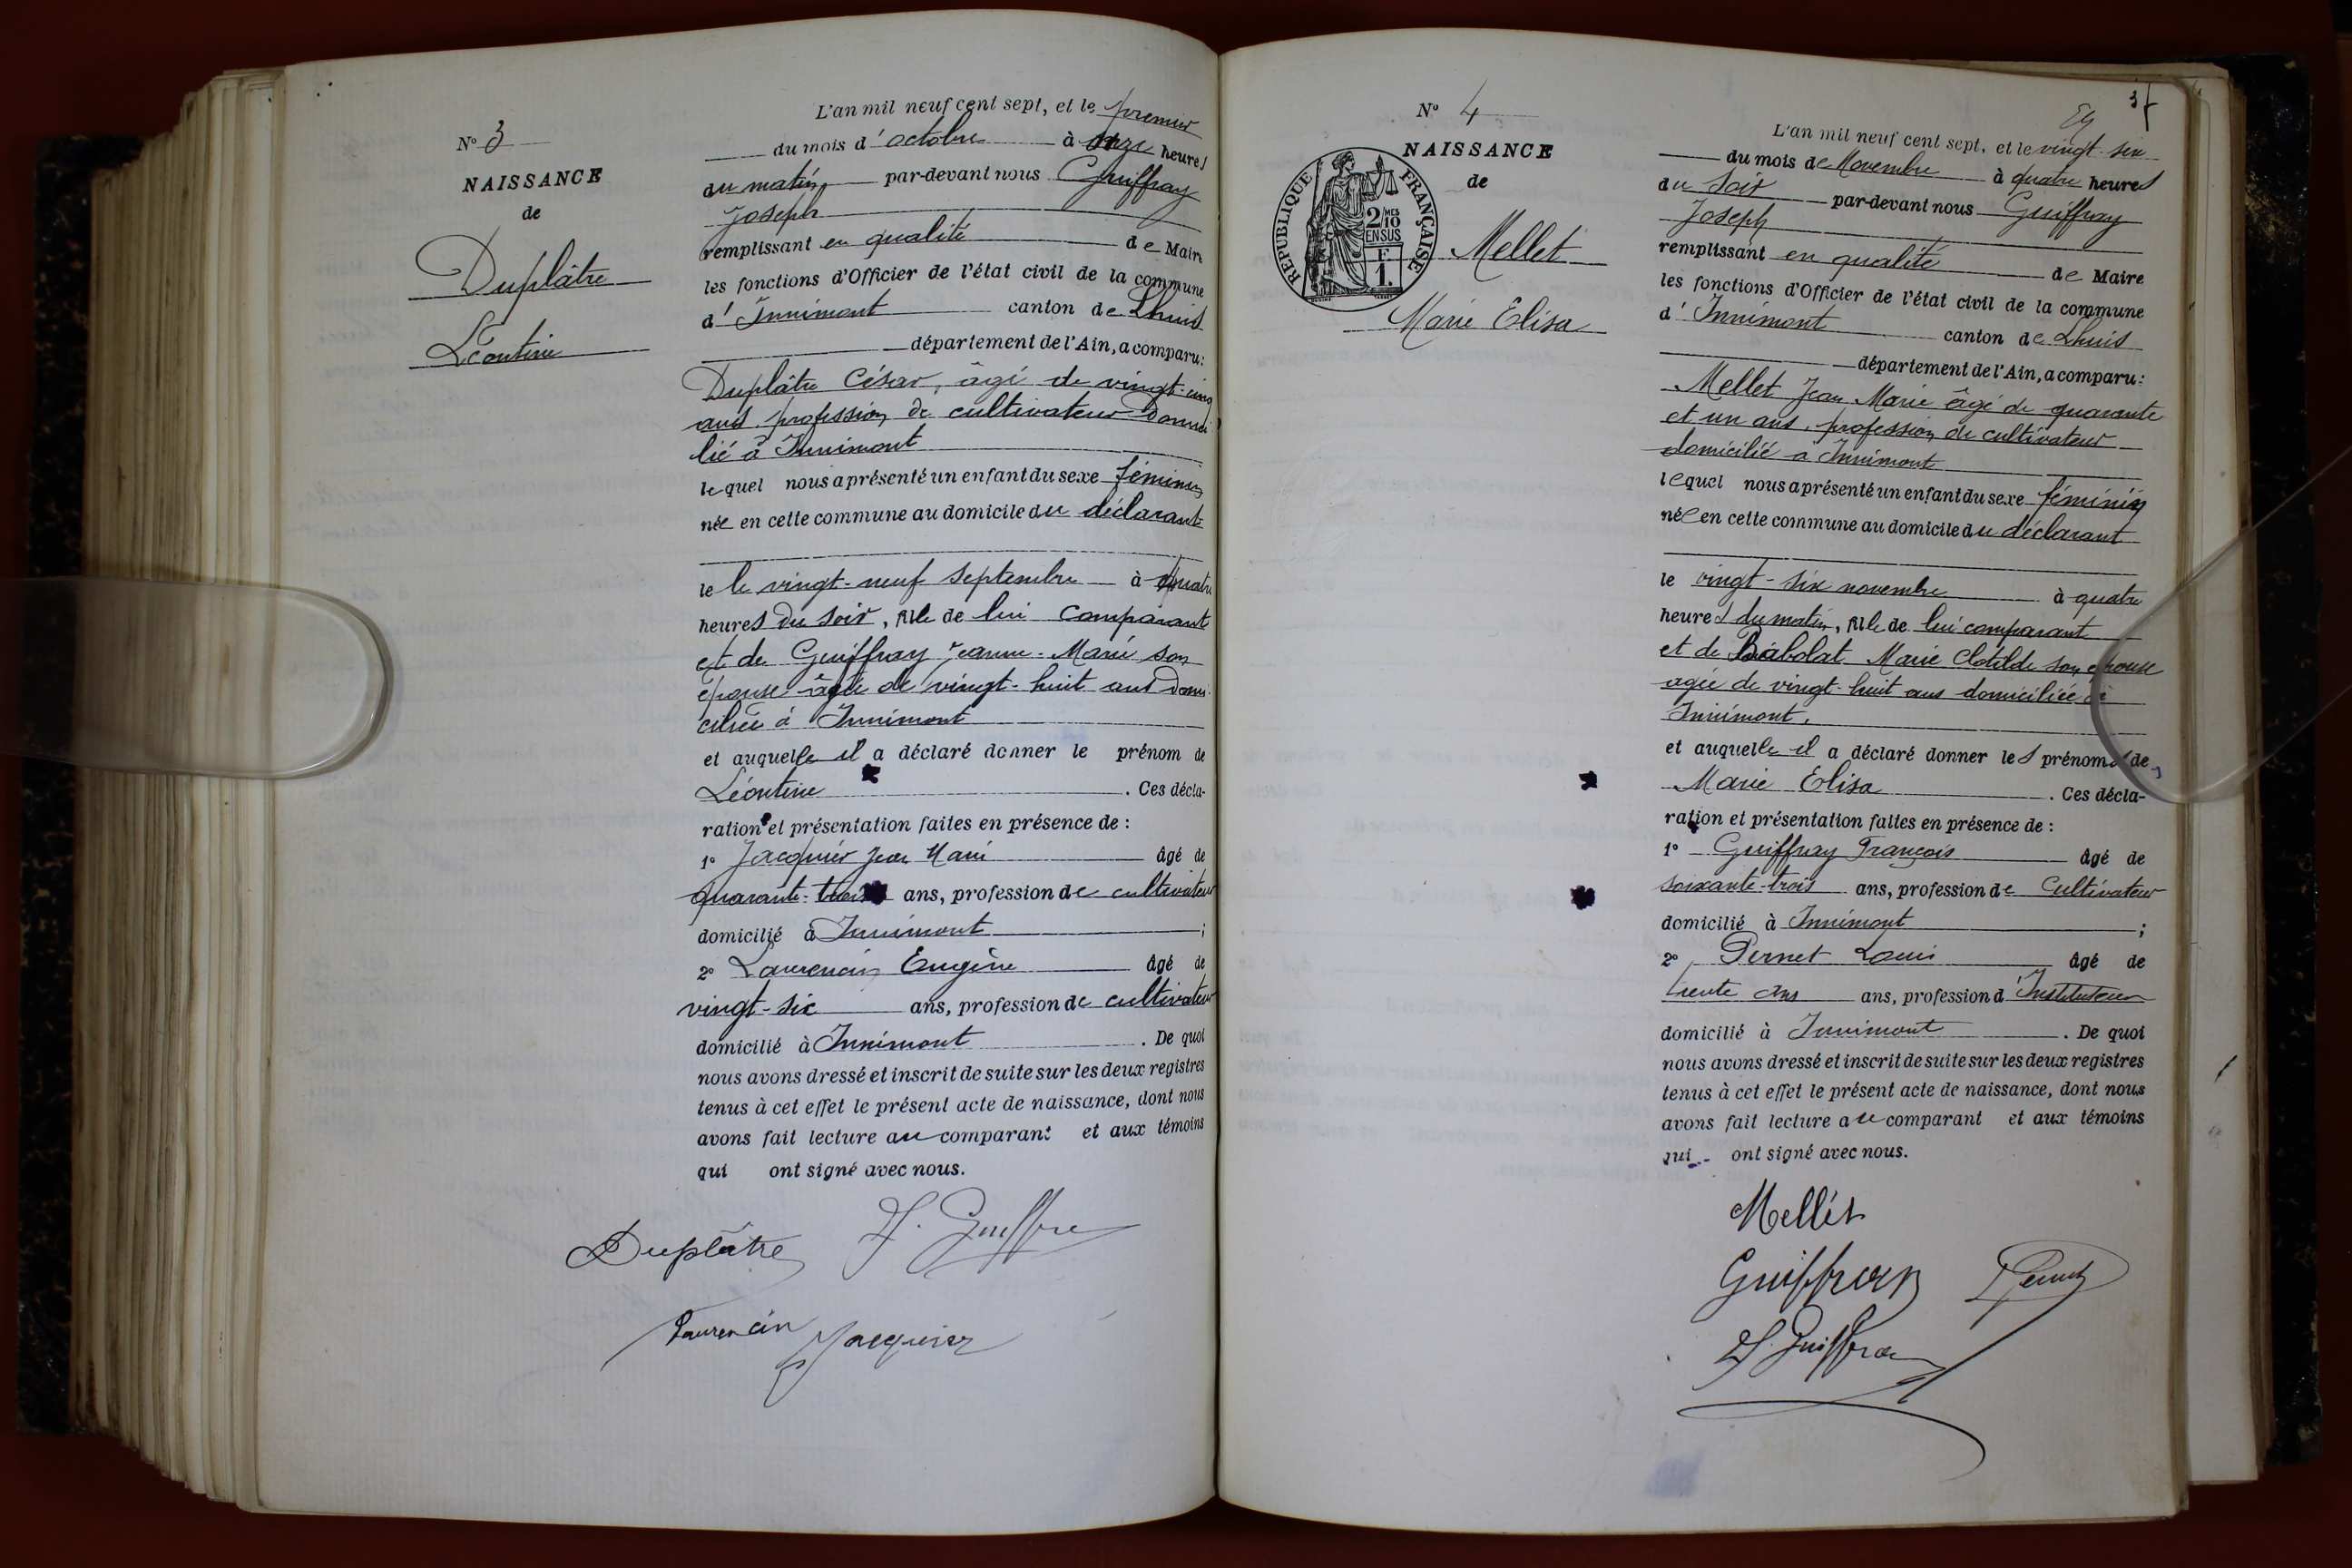 N° 3
NAISSANCE
de
Duplâtre
Léontine
L'an mil neuf cent sept, et le premier
du mois d'octobre à onze heures
du matin par-devant nous Guiffray
Joseph
remplissant en qualité de Maire
les fonctions d'Officier de l'état civil de la commune
d'Innimont canton de Lhuis
département de l'Ain, a comparu:
Duplâtre César, âgé de vingt-cinq
ans profession de cultivateur domici
lié à Innimont
lequel nous a présenté un enfant du sexe féminin
née en cette commune au domicile du déclarant
le le vingt-neuf septembre à quatre
heures du soir, fille de lui comparant
et de Guiffray Jeanne-Marie son
épouse âgée de vingt-huit ans domi
ciliée à Innimont
et auquelle il a déclaré donner le prénom de
Léontine . Ces décla-
ration et présentation faites en présence de :
1° Jacquier Jean Marie âgé de
quarante-trois ans, profession de cultivateur
domicilié à Innimont ;
2° Laurencin Eugène âgé de
vingt-six ans, profession de cultivateur
domicilié à Innimont . De quoi
nous avons dressé et inscrit de suite sur les deux registres
tenus à cet effet le présent acte de naissance, dont nous
avons fait lecture au comparant et aux témoins
qui ont signé avec nous.
Duplâtre J. Guiffre
Laurencin Jacquier
37
N° 4
NAISSANCE
de
RÉPUBLIQUE FRANÇAISE
2/10 MES
EN SUS
F.
1.
Mellet
Marie Elisa
L'an mil neuf cent sept, et le vingt-six
du mois de Novembre à quatre heures
du soir par-devant nous Guiffray
Joseph
remplissant en qualité de Maire
les fonctions d'Officier de l'état civil de la commune
d'Innimont canton de Lhuis
département de l'Ain, a comparu:
Mellet Jean Marie âgé de quarante
et un ans, profession de cultivateur
domicilié à Innimont
lequel nous a présenté un enfant du sexe féminin
née en cette commune au domicile du déclarant
le vingt-six novembre à quatre
heures du matin, fille de lui comparant
et de Babolat Marie Clotilde son épouse
agée de vingt-huit ans domiciliée à
Innimont.
et auquelle il a déclaré donner les prénoms de
Marie Elisa . Ces décla-
ration et présentation faites en présence de :
1° Guiffray François âgé de
soixante-trois ans, profession de Cultivateur
domicilié à Innimont ;
2° Pernet Louis âgé de
trente ans ans, profession d'Instituteur
domicilié à Innimont . De quoi
nous avons dressé et inscrit de suite sur les deux registres
tenus à cet effet le présent acte de naissance, dont nous
avons fait lecture au comparant et aux témoins
qui ont signé avec nous.
Mellet
Guiffray Pernet
J. Guiffray